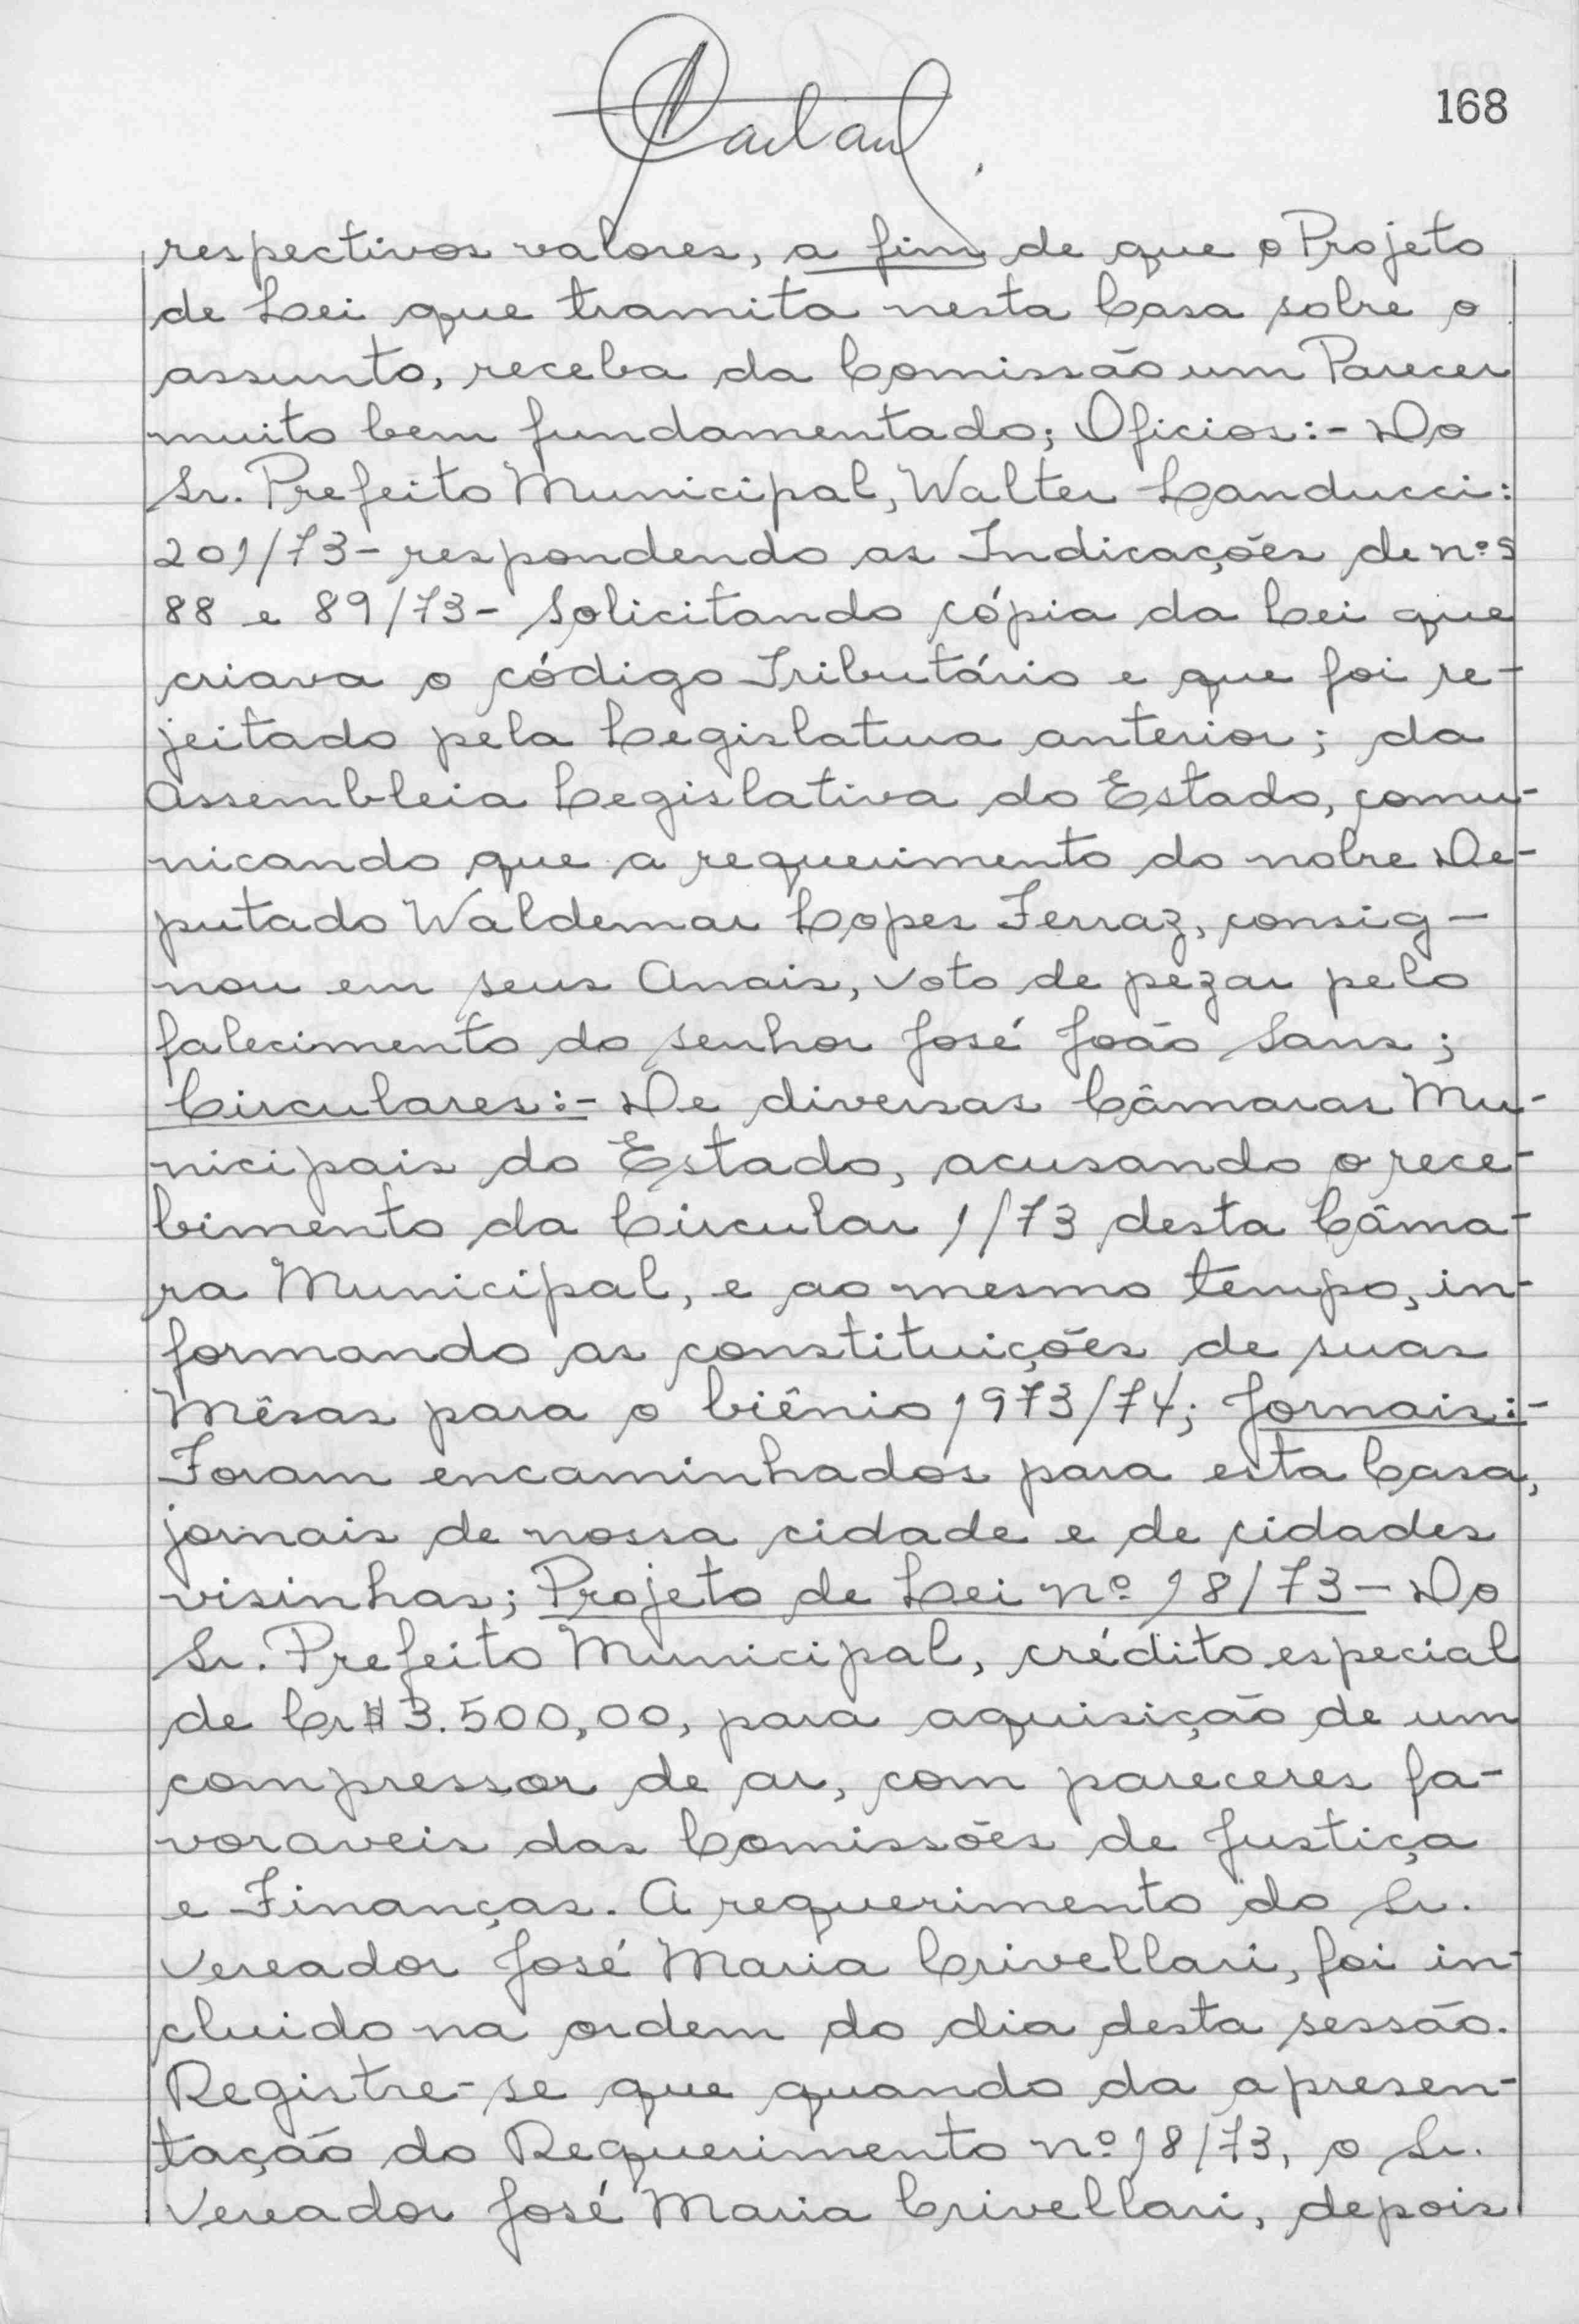 168
respectivos valores, a fim de que o Projeto
de Lei que tramita nesta Casa sobre o
assunto, receba da Comissão um Parecer
muito bem fundamentado; Oficios:- Do
Sr. Prefeito Municipal, Walter Landucci:
201/73- respondendo as Indicações de nºs
88 e 89/73- Solicitando cópia da Lei que
criava o código Tributário e que foi re-
jeitado pela Legislatura anterior; da
Assembleia Legislativa do Estado, comu-
nicando que a requerimento do nobre De-
putado Waldemar Lopes Ferraz, consig-
nou em seus Anais, voto de pezar pelo
falecimento do senhor José João Sans;
Circulares:- De diversas Câmaras Mu-
nicipais do Estado, acusando o rece-
bimento da Circular 1/73 desta Câma-
ra Municipal, e ao mesmo tempo, in-
formando as constituições de suas
Mêsas para o biênio 1973/74; Jornais:-
Foram encaminhados para esta Casa,
jornais de nossa cidade e de cidades
visinhas; Projeto de Lei nº 18/73- Do
Sr. Prefeito Municipal, crédito especial
de Cr$ 3.500,00, para aquisição de um
compressor de ar, com pareceres fa-
voraveis das Comissões de Justiça
e Finanças. A requerimento do Sr.
Vereador José Maria Crivellari, foi in-
cluido na ordem do dia desta sessão.
Registre-se que quando da apresen-
tação do Requerimento nº 18/73, o Sr.
Vereador José Maria Crivellari, depois